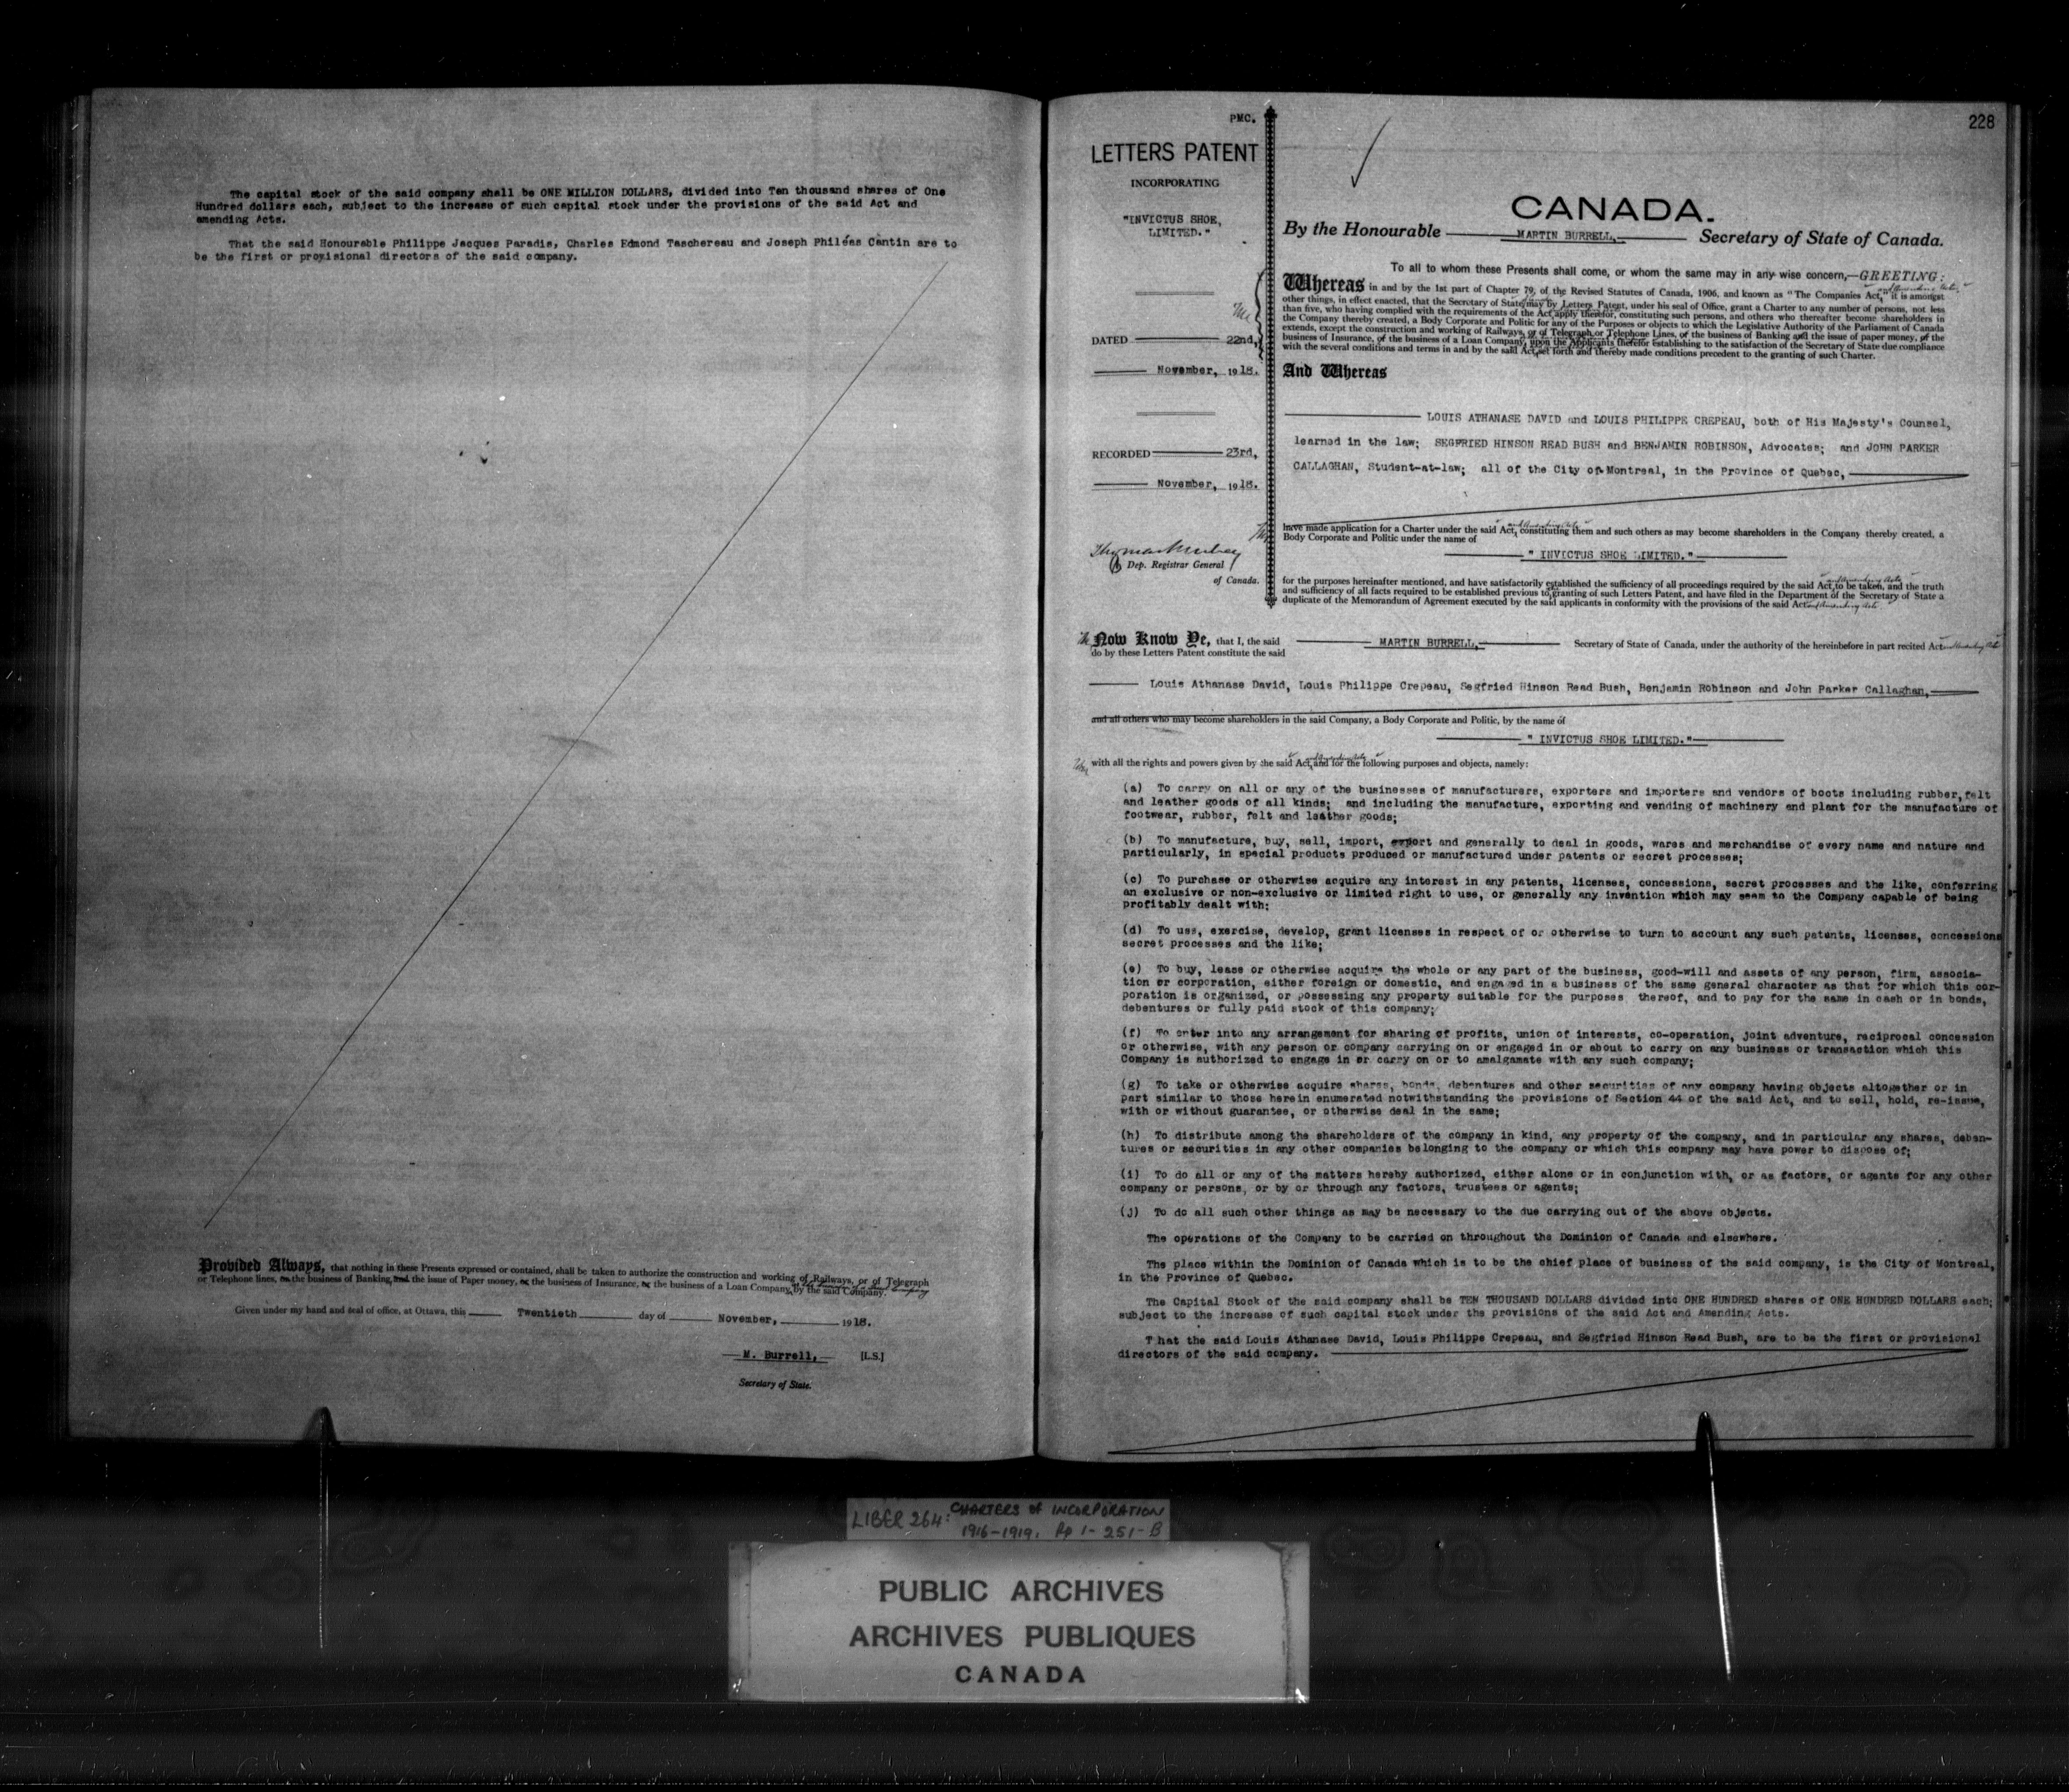 The capital stock of the said company shall be ONE MILLION DOLLARS, divided into Ten thousand shares of One
Hundred dollars each, subject to the increase of such capital stock under the provisions of the said Act and
amending Acts.
That the said Honourable Philippe Jacques Paradis, Charles Edmond Taschereau and Joseph Philéas Cantin are to
be the first or provisional directors of the said company.
Provided Always, that nothing in these Presents expressed or contained, shall be taken to authorize the construction and working of Railways, or of Telegraph
or Telephone lines, or the business of Banking, and the issue of Paper money, or the business of Insurance, or the business of a Loan Company, by the said Company.
Given under my hand and seal of office, at Ottawa, this Twentieth day of November, 1918.
M. Burrell, [L.S.]
Secretary of State.
PMC.
LETTERS PATENT
INCORPORATING
"INVICTUS SHOE,
LIMITED."
DATED 22nd,
November, 1918.
RECORDED 23rd,
November, 1918.
Thomas Mulvey
Dep. Registrar General
of Canada.
228
CANADA.
By the Honourable MARTIN BURRELL, Secretary of State of Canada.
To all to whom these Presents shall come, or whom the same may in any wise concern,—GREETING:
Whereas in and by the 1st part of Chapter 79, of the Revised Statutes of Canada, 1906, and known as "The Companies Act," and Amending Acts, it is amongst
other things, in effect enacted, that the Secretary of State may by Letters Patent, under his seal of Office, grant a Charter to any number of persons, not less
than five, who having complied with the requirements of the Act apply therefor, constituting such persons, and others who thereafter become shareholders in
the Company thereby created, a Body Corporate and Politic for any of the Purposes or objects to which the Legislative Authority of the Parliament of Canada
extends, except the construction and working of Railways, or of Telegraph or Telephone Lines, or the business of Banking and the issue of paper money, or the
business of Insurance, or the business of a Loan Company, upon the Applicants therefor establishing to the satisfaction of the Secretary of State due compliance
with the several conditions and terms in and by the said Act, set forth and thereby made conditions precedent to the granting of such Charter.
And Whereas
LOUIS ATHANASE DAVID and LOUIS PHILIPPE CREPEAU, both of His Majesty's Counsel,
learned in the law; SEGFRIED HINSON READ BUSH and BENJAMIN ROBINSON, Advocates; and JOHN PARKER
CALLAGHAN, Student-at-law; all of the City of Montreal, in the Province of Quebec,
have made application for a Charter under the said Act, and Amending Acts constituting them and such others as may become shareholders in the Company thereby created, a
Body Corporate and Politic under the name of
" INVICTUS SHOE LIMITED."
for the purposes hereinafter mentioned, and have satisfactorily established the sufficiency of all proceedings required by the said Act and Amending Acts to be taken, and the truth
and sufficiency of all facts required to be established previous to granting of such Letters Patent, and have filed in the Department of the Secretary of State a
duplicate of the Memorandum of Agreement executed by the said applicants in conformity with the provisions of the said Act and Amending Acts
Now Know Ye, that I, the said MARTIN BURRELL, Secretary of State of Canada, under the authority of the hereinbefore in part recited Act and Amending Acts
do by these Letters Patent constitute the said
Louis Athanase David, Louis Philippe Crepeau, Segfried Hinson Read Bush, Benjamin Robinson and John Parker Callaghan,
and all others who may become shareholders in the said Company, a Body Corporate and Politic, by the name of
" INVICTUS SHOE LIMITED."
with all the rights and powers given by the said Act, and Amending Acts and for the following purposes and objects, namely:
(a) To carry on all or any of the businesses of manufacturers, exporters and importers and vendors of boots including rubber, felt
and leather goods of all kinds; and including the manufacture, exporting and vending of machinery and plant for the manufacture of
footwear, rubber, felt and leather goods;
(b) To manufacture, buy, sell, import, export and generally to deal in goods, wares and merchandise of every name and nature and
particularly, in special products produced or manufactured under patents or secret processes;
(c) To purchase or otherwise acquire any interest in any patents, licenses, concessions, secret processes and the like, conferring
an exclusive or non-exclusive or limited right to use, or generally any invention which may seem to the Company capable of being
profitably dealt with;
(d) To use, exercise, develop, grant licenses in respect of or otherwise to turn to account any such patents, licenses, concessions
secret processes and the like;
(e) To buy, lease or otherwise acquire the whole or any part of the business, good-will and assets of any person, firm, associa-
tion or corporation, either foreign or domestic, and engaged in a business of the same general character as that for which this cor-
poration is organized, or possessing any property suitable for the purposes thereof, and to pay for the same in cash or in bonds,
debentures or fully paid stock of this company;
(f) To enter into any arrangement for sharing of profits, union of interests, co-operation, joint adventure, reciprocal concession
or otherwise, with any person or company carrying on or engaged in or about to carry on any business or transaction which this
Company is authorized to engage in or carry on or to amalgamate with any such company;
(g) To take or otherwise acquire shares, bonds, debentures and other securities of any company having objects altogether or in
part similar to those herein enumerated notwithstanding the provisions of Section 44 of the said Act, and to sell, hold, re-issue,
with or without guarantee, or otherwise deal in the same;
(h) To distribute among the shareholders of the company in kind, any property of the company, and in particular any shares, deben-
tures or securities in any other companies belonging to the company or which this company may have power to dispose of;
(i) To do all or any of the matters hereby authorized, either alone or in conjunction with, or as factors, or agents for any other
company or persons, or by or through any factors, trustees or agents;
(j) To do all such other things as may be necessary to the due carrying out of the above objects.
The operations of the Company to be carried on throughout the Dominion of Canada and elsewhere.
The place within the Dominion of Canada which is to be the chief place of business of the said company, is the City of Montreal,
in the Province of Quebec.
The Capital Stock of the said company shall be TEN THOUSAND DOLLARS divided into ONE HUNDRED shares of ONE HUNDRED DOLLARS each;
subject to the increase of such capital stock under the provisions of the said Act and Amending Acts.
T hat the said Louis Athanase David, Louis Philippe Crepeau, and Segfried Hinson Read Bush, are to be the first or provisional
directors of the said company.
LIBER 264: CHARTERS of INCORPORATION
1916-1919. Pp 1- 251-B
PUBLIC ARCHIVES
ARCHIVES PUBLIQUES
CANADA